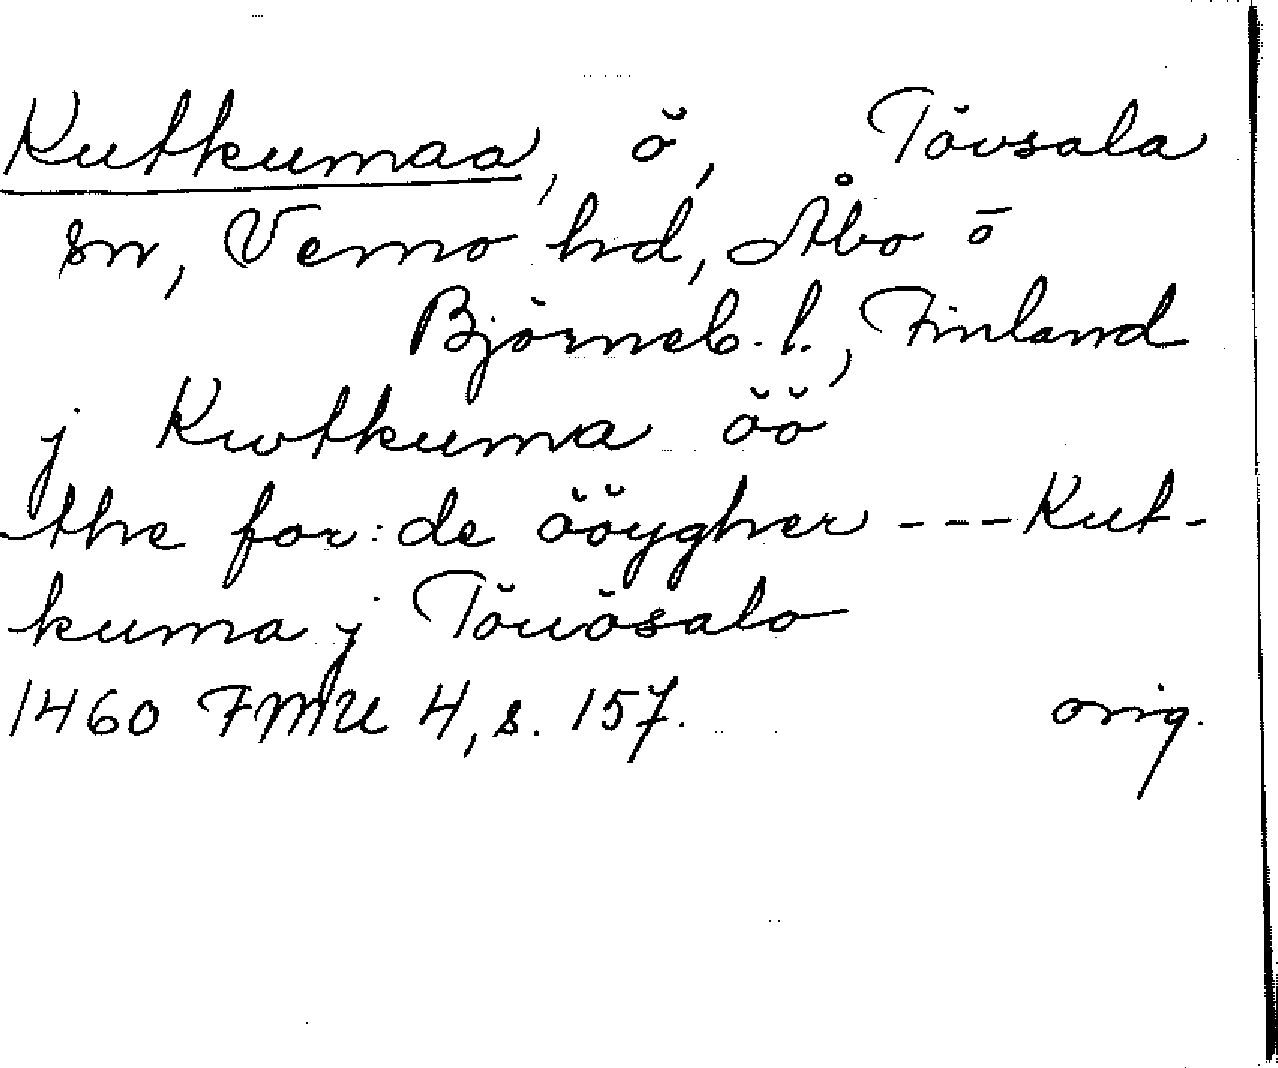 Kutkumaa, ö, Tövsala
sn, Vemo hd, Åbo o
Björneb. l., Finland
j Kwtkuma öö
the for: de ööygher --- Kut-
kuma j Töuösalo
1460 FMU 4, s. 157. orig.